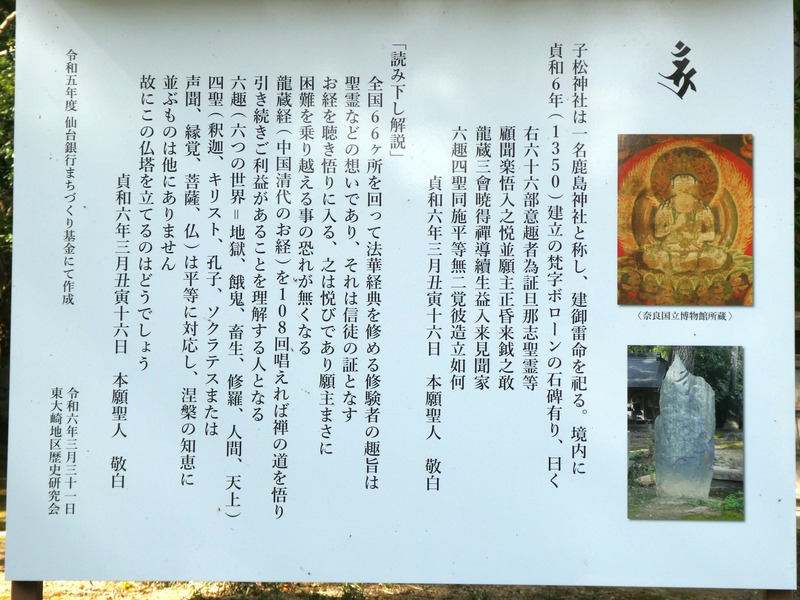 子松神社は一名鹿島神社と称し、建御雷命を祀る。境内に
貞和6年(1350)建立の梵字ボローンの石碑有り、曰く
右六十六部意趣者為証旦那志聖霊等
顧聞楽悟入之悦並願主正昏来鉞之敢
龍蔵三會暁得禪導續生益入来見聞家
六趣四聖同施平等無二覚彼造立如何
貞和六年三月丑寅十六日 本願聖人 敬白
「読み下し解説」
全国66ヶ所を回って法華経典を修める修験者の趣旨は
聖霊などの想いであり、それは信徒の証となす
お経を聴き悟りに入る、之は悦びであり願主まさに
困難を乗り越える事の恐れが無くなる
龍蔵経(中国清代のお経)を108回唱えれば禅の道を悟り
引き続きご利益があることを理解する人となる
六趣(六つの世界=地獄、餓鬼、畜生、修羅、人間、天上)
四聖(釈迦、キリスト、孔子、ソクラテスまたは
声聞、縁覚、菩薩、仏)は平等に対応し、涅槃の知恵に
並ぶものは他にありません
故にこの仏塔を立てるのはどうでしょう
貞和六年三月丑寅十六日 本願聖人 敬白
令和五年度 仙台銀行まちづくり基金にて作成
令和六年三月三十一日
東大崎地区歴史研究会
〈奈良国立博物館所蔵〉